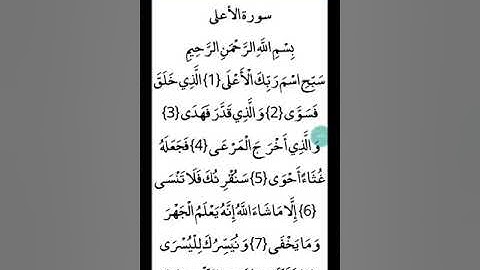 سورة الأعلى
بِسْمِ اللَّهِ الرَّحْمَنِ الرَّحِيمِ
سَبِّحِ اسْمَ رَبِّكَ الْأَعْلَى {1} الَّذِي خَلَقَ
فَسَوَّى {2} وَالَّذِي قَدَّرَ فَهَدَى {3}
وَالَّذِي أَخْرَجَ الْمَرْعَى {4} فَجَعَلَهُ
غُثَاءً أَحْوَى {5} سَنُقْرِئُكَ فَلَا تَنْسَى
{6} إِلَّا مَا شَاءَ اللَّهُ إِنَّهُ يَعْلَمُ الْجَهْرَ
وَمَا يَخْفَى {7} وَنُيَسِّرُكَ لِلْيُسْرَى